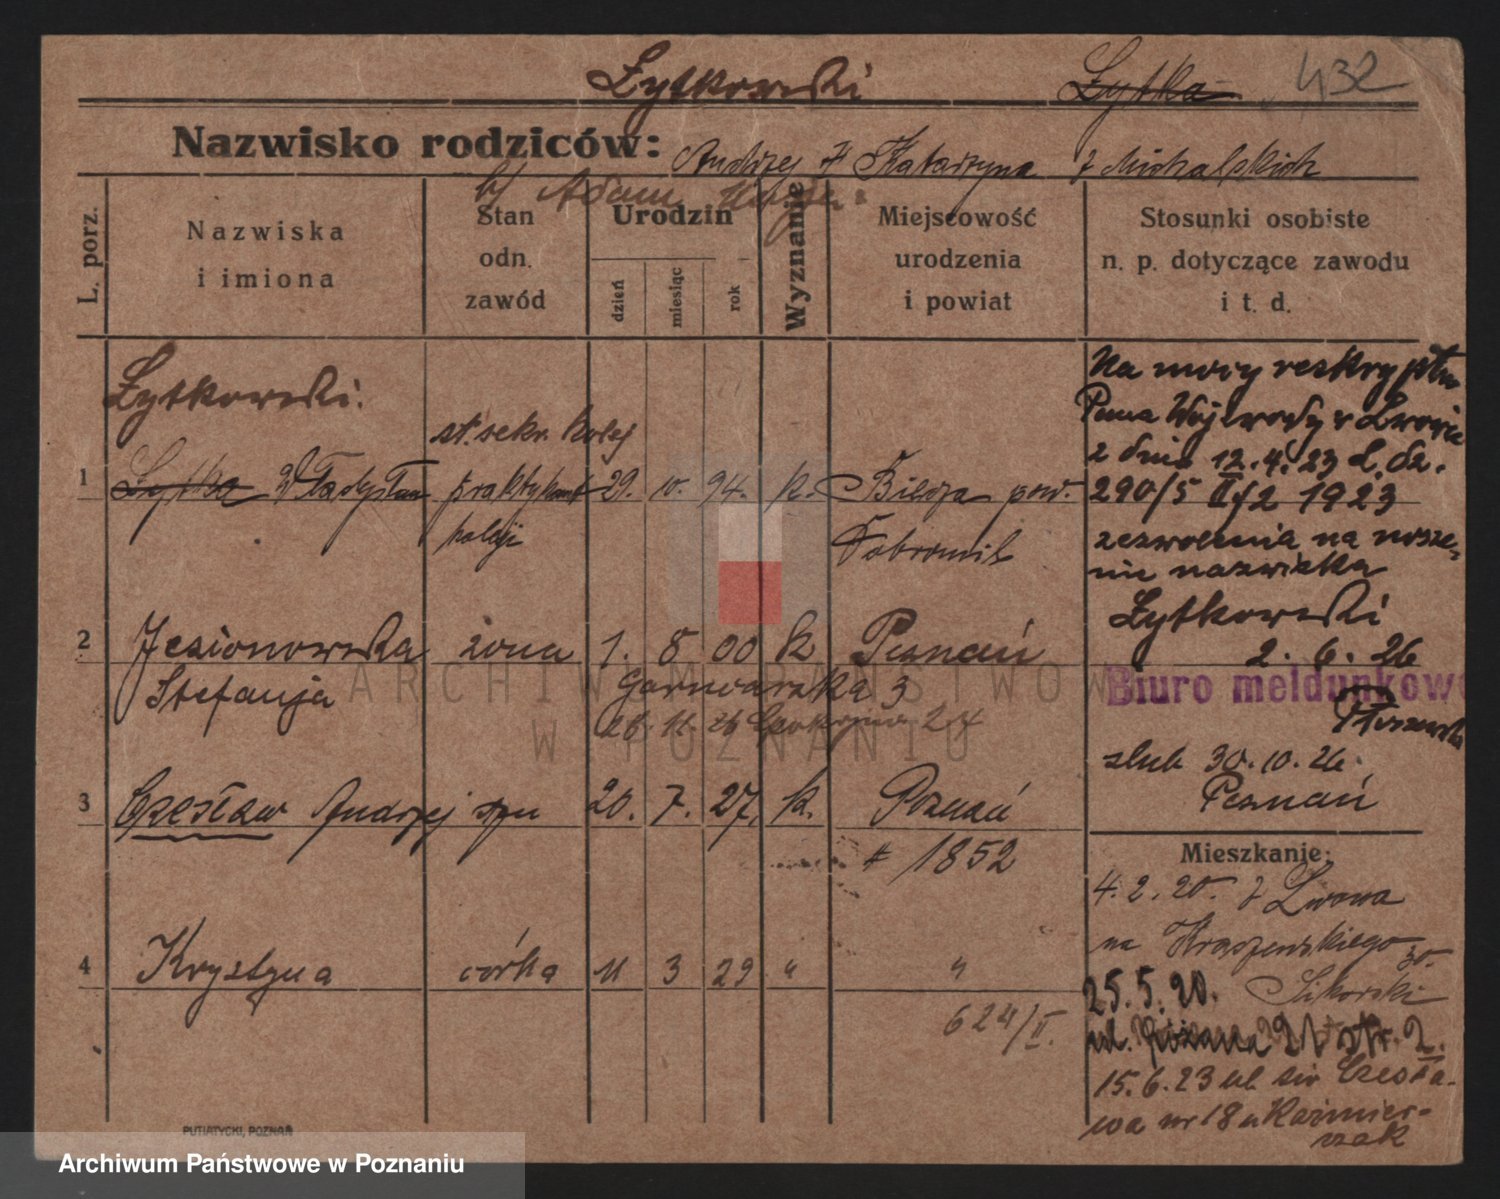 Żytkowski Żytka 432
Nazwisko rodziców: Andrzej i Katarzyna z Michalskich
b/ Adam
L. porz.
Nazwiska i imiona
Stan odn. zawód
Urodzin
dzień miesiąc rok
Wyznanie
Miejscowość urodzenia i powiat
Stosunki osobiste n. p. dotyczące zawodu i t. d.
Żytkowski
st. sekr. kolej
1 Żytka Władysław praktykant 29. 10. 94. k. Bircza pow.
koleji Dobromil
Na mocy reskryptu
Pana Wojewody w Lwowie
z dnia 12.4.23 L. dz.
290/5 II/2 1923
zezwolenia na nosze-
nie nazwiska
Żytkowski
2. 6. 26
Biuro meldunkowe
2 Jesionowska żona 1. 8 00 k Poznań
Stefanja Garncarska 3
26. 11. 26 Spokojna 24
ślub 30.10.26.
Poznań
3 Czesław Andrzej syn 20. 7. 27. k. Poznań
# 1852
4 Krystyna córka 11 3 29 " "
624/II.
Mieszkanie:
4.2.20. z Lwowa
na Kraszewskiego 30.
25.5.20. Sikorski
ul. Różana 21 ptr. 2.
15.6.23 ul. św Czesła-
wa nr 18 u Kaźmier-
czak
PUTIATYCKI, POZNAŃ
ARCHIWUM PAŃSTWOWE
W POZNANIU
Archiwum Państwowe w Poznaniu